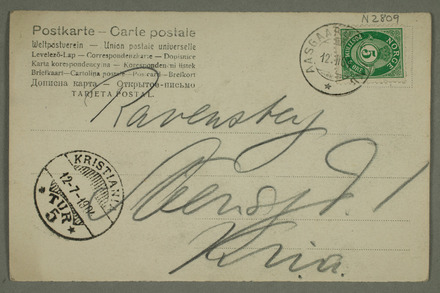 N2809
Postkarte – Carte postale
Weltpostverein – Union postale universelle
Levelező-Lap – Correspondenzkarte – Dopisnice
Karta korespondencyjna – Korespondenční lístek
Briefkaart – Cartolina postale – Postcard – Brefkort
Дописна карта – Открытое письмо
TARJETA POSTAL.
AASGAARD
12
NORGE
5
Ravensberg
1
Kria.
KRISTIANIA
12-7-1904
TUR
5